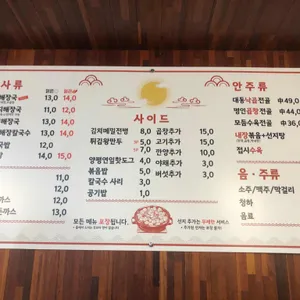 사류
해장국 13,0 14,0
해장국 11,0 12,0
해장국 13,0 14,0
해장칼국수 13,0 14,0
국밥 12,0
밥 14,0 15,0
11,0
12,0
까스 13,0
사이드
김치메밀전병 8,0
튀김왕만두 5,0
양평연잎핫도그 4,0
볶음밥 5,0
칼국수 사리 3,0
공기밥 1,0
곱창추가 15,0
고기추가 15,0
깐양추가 10,0
야채추가 3,0
버섯추가 3,0
모든 메뉴 포장됩니다.
선지 추가는 무제한 서비스
안주류
대동낙곱전골 中49,0
명언곱창전골 中44,0
모듬수육전골 中36,0
내장볶음+선지탕
접시수육
음·주류
소주/맥주/막걸리
청하
음료